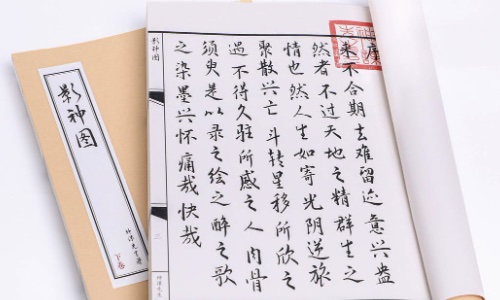 序
来不合期去难留迹意兴盎
然者不过天地之精群生之
情也然人生如寄光阴逆旅
聚散兴亡斗转星移所欣之
遇不得久驻所感之人肉骨
须臾是以录之绘之醉之歌
之染墨兴怀痛哉快哉
影神图
三
影神图
下卷